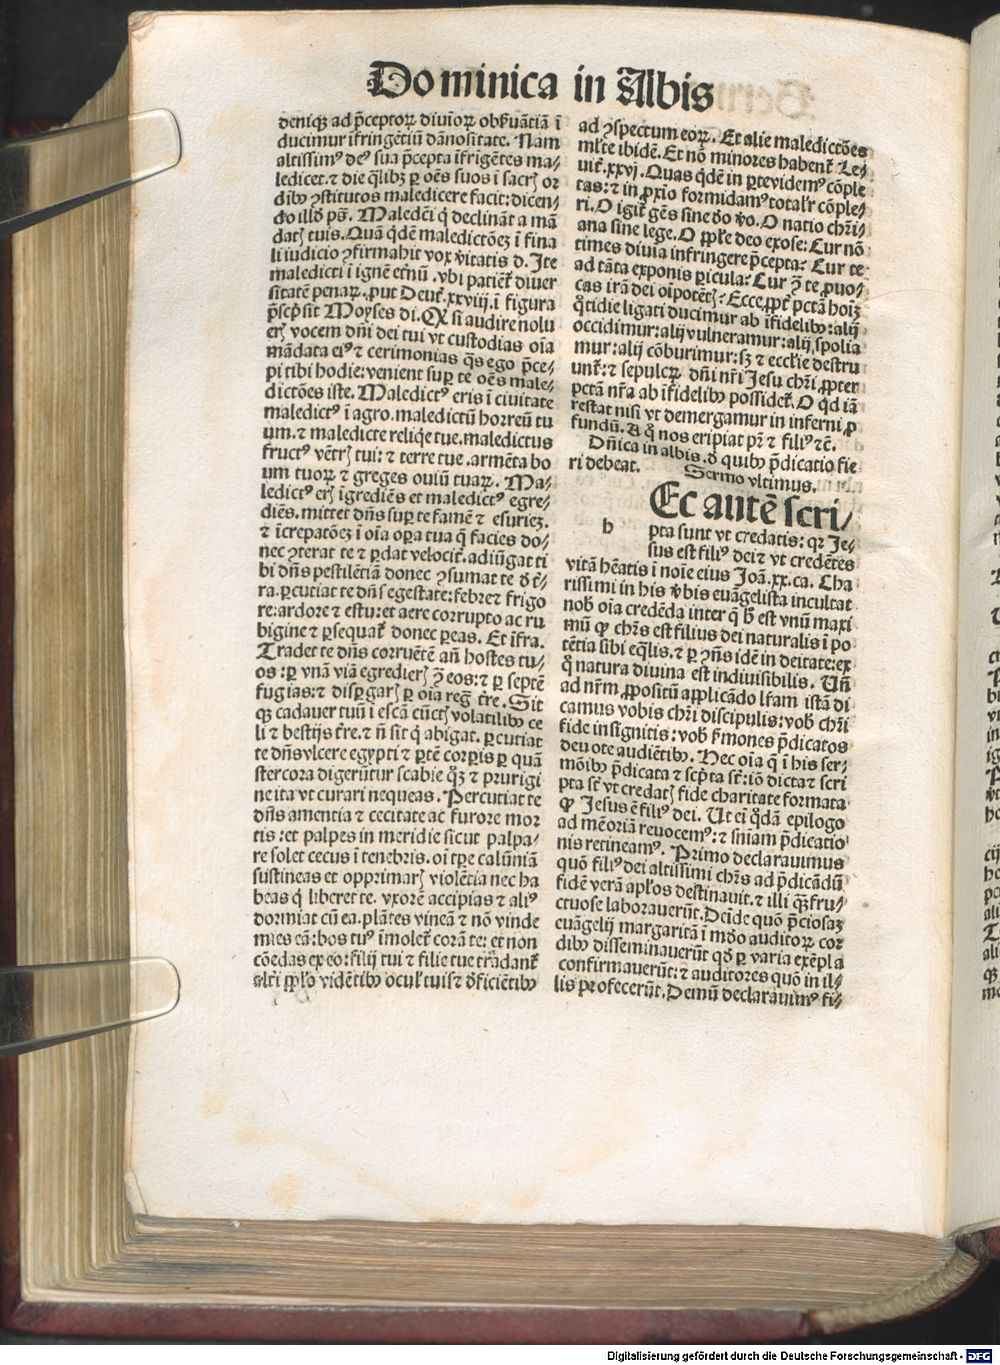 Dominica in Albis
deniqꝫ ad p̄ceptoꝝ diuioꝝ obẜuātiā ī
ducimur ifringētiū dānositate. Nam
altissimꝰ deꝰ sua p̄cepta ifrigētes ma⸗
ledicet. ⁊ die q̄libꝫ ꝑ oēs suos ī sacꝝ or
dibꝰ ꝯstitutos maledicere facit: dicen⸗
do illō pẜ. Maledēi q̇ declināt a mā
datꝭ tuis. Quā qͥdē maledictōeꝫ ī fina
li iudicio ꝯfirmabit vox v̓itatis d. Ite
maledicti ī ignē etnū. vbi patient̉ diuer
sitatē penaꝝ. put Deut̉. xxviij. ī figura
p̄scp̄sit Moyses di. Qꝫ si audire nolu
erꝭ vocem dn̄i dei tui vt custodias oīa
mādata eiꝰ ⁊ cerimonias q̄s ego p̄ce⸗
pi tibi hodie: venient suꝑ te oēs male⸗
dictōes iste. Maledictꝰ eris ī ciuitate
maledictꝰ ī agro. maledictū horreū tu
um. ⁊ maledicte reliqͥe tue. maledictus
fructꝰ vētrꝭ tui: ⁊ terre tue. armēta bo
um tuoꝝ ⁊ greges ouiū tuaꝝ. Ma⸗
ledictꝰ erꝭ īgrediēs et maledictꝰ egre⸗
diēs. mittet dn̄s suꝑ te famē ⁊ esuriez.
⁊ īcrepatōeꝫ ī oīa oꝑa tua q̄ facies do⸗
nec ꝯterat te ⁊ ꝑdat velocit̉. adiūgat ti
bi dn̄s pestilētiā donec ꝯsumat te d̓ t̓⸗
ra. ꝑcutiat te dn̄s egestate: febre ⁊ frigo
re: ardore ⁊ estu: et aere corrupto ac ru
bigine ⁊ ꝑsequat̉ donec ꝑeas. Et ifra.
Tradet te dn̄s corruētē an̄ hostes tu⸗
os: ꝑ vnā viā egredierꝭ ꝯ̄ eos: ⁊ ꝑ septē
fugias: ⁊ disꝑgarꝭ ꝑ oīa reg̉ t̓re. Sit
qꝫ cadauer tuū ī escā cūctꝭ volatilibꝰ ce
li ⁊ bestijs t̓re. ⁊ n̄ sit q̇ abigat. ꝑcutiat
te dn̄s vlcere egypti ⁊ ꝑtē corꝑis ꝑ quā
stercora digerūtur scabie qͦꝫ ⁊ prurigi
ne ita vt curari nequeas. Percutiat te
dn̄s amentia ⁊ cecitate ac furore mor
tis: et palpes in meridie sicut palpa⸗
re solet cecus ī tenebris. oī tꝑe calūniā
sustineas et opprimarꝭ violētia nec ha
beas q̇ liberet te. vxorē accipias ⁊ aliꝰ
dormiat cū ea. plātes vineā ⁊ nō vinde
mies eā: bos tuꝰ īmolet̉ corā te: et non
cōedas ex eo: filij tui ⁊ filie tue tradant̉
alt̓i pplo vidētibꝰ ocul̉ tuis ⁊ d̓ficiētibꝰ
ad ꝯspectum eoꝝ. Et alie maledictōes
ml̓te ibidē. Et nō minores habent̉ Le⸗
uit̉. xxvj. Quas qͥdē in ꝑte videmꝰ cōple
tas: ⁊ in ꝓxio formidamꝰ total̓r cōple⸗
ri. O igit̉ gēs sine d̓o v̓o. O natio chr̄i⸗
ana sine lege. O pple deo exose: Cur nō
times diuia infringere p̄cepta? Cur te
ad tāta exponis ꝑicula? Cur ꝯ̄ te ꝓuo⸗
cas irā dei oīpotētꝭ? Ecce ꝓpt̉ pctā hoīꝫ
qͦtidie ligati ducimur ab ifidelibꝰ: alij
occidimur: alij vulneramur: alij spolia
mur: alij cōburimur: sꝫ ⁊ eccl̓ie destru
unt̉: ⁊ sepulcꝝ dn̄i nr̄i Jesu chr̄i ꝓpter
pctā nr̄a ab ifidelibꝰ possidet̉. O qͥd iā
restat nisi vt demergamur in inferni ꝓ
fundū. A qͦ nos eripiat pr̄ ⁊ filiꝰ ⁊c̄.
Dn̄ica in albis. d̓ quibꝰ p̄dicatio fie
ri debeat. Sermo vltimus.
Ec autē scri⸗
h
pta sunt vt credatis: qꝛ Je⸗
sus est filiꝰ dei ⁊ vt credētes
vitā hēatis ī noīe eius Joā. xx. ca. Cha
rissimi in his v̓bis euāgelista incultat
nob̓ oīa credēda inter q̄ b̓ est vnū maxi
mū ꝙ chr̄s est filius dei naturalis ī po
tētia sibi eq̄lis. ⁊ ꝑ ꝯn̄s idē in deitate: ex
qͦ natura diuina est indiuisibilis. Un̄
ad nr̄m ꝓpositū applicādo lr̄am istā di
camus vobis chr̄i discipulis: vob̓ chr̄i
fide insignitis: vob̓ ẜmones p̄dicatos
deuote audiētibꝰ. Hec oīa q̄ ī his ser⸗
mōibꝰ p̄dicata ⁊ scp̄ta st̄: iō dicta ⁊ scri
pta st̄ vt credatꝭ fide charitate formata
ꝙ Jesus ē filiꝰ dei. Ut eī qͦdā epilogo
ad mēoriā reuocemꝰ: ⁊ sn̄iam p̄dicatio⸗
nis retineamꝰ. Primo declarauimus
quō filiꝰ dei altissimi chr̄s ad p̄dicādū
fidē verā apl̓os destinauit. ⁊ illi q̄ꝫ fru⸗
ctuose laborauerūt. Deīde quō p̄ciosaꝫ
euāgelij margaritā ī mūdo auditoꝝ cor
dibꝰ disseminauerūt qd̓ ꝑ varia exēpla
confirmauerūt: ⁊ auditores quō in il⸗
lis profecerūt. Demū declarauimꝰ fi⸗
Digitalisierung gefördert durch die Deutsche Forschungsgemeinschaft - DFG